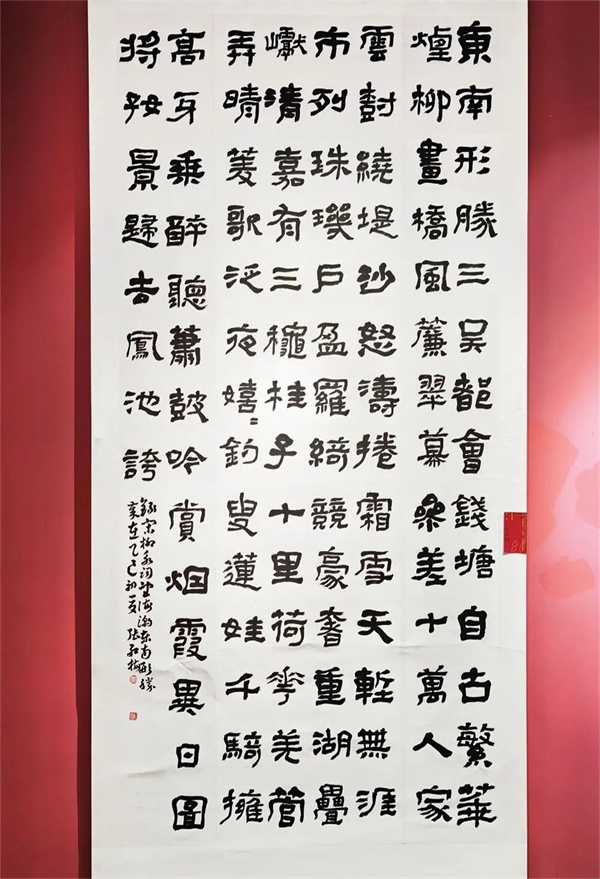 東南形勝三吳都會錢塘自古繁華
煙柳畫橋風簾翠幕參差十萬人家
雲樹繞堤沙怒濤捲霜雪天塹無涯
市列珠璣戶盈羅綺競豪奢重湖疊
巘清嘉有三穐桂子十里荷花羌管
弄晴菱歌泛夜嬉〻釣叟蓮娃千騎擁
高牙乘醉聽蕭鼓吟賞烟霞異日圖
將好景歸去鳳池誇
錄宋柳永詞望海潮東南形勝
歲在乙巳初夏張